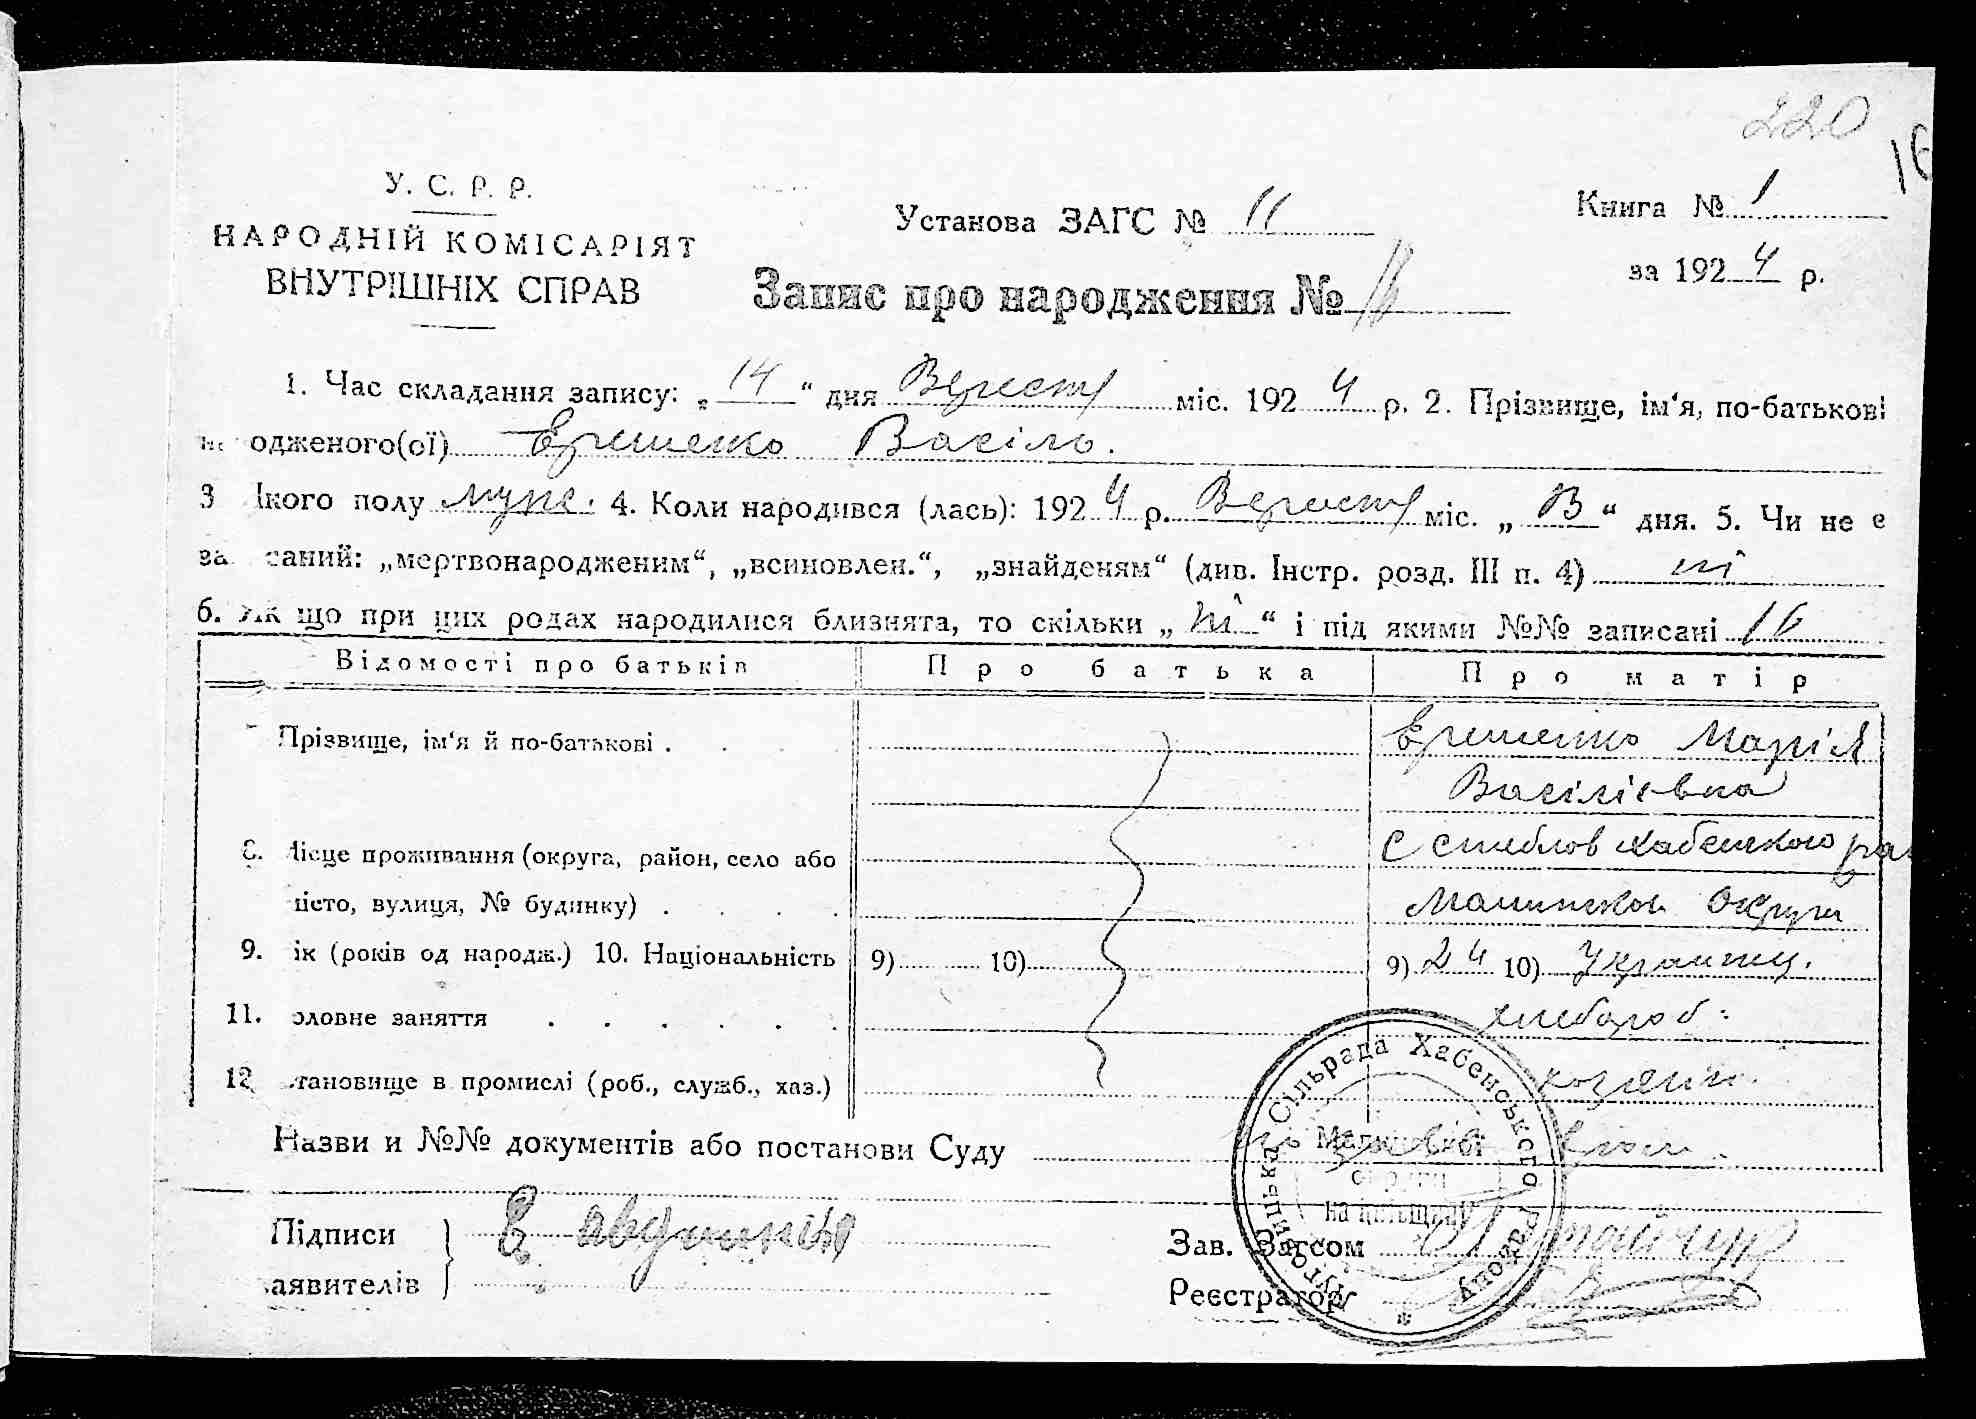 220
16
У. С. Р. Р.
НАРОДНІЙ КОМІСАРІЯТ
ВНУТРІШНІХ СПРАВ
Установа ЗАГС № 11
Книга № 1
за 1924 р.
Запис про народження № 16
1. Час складання запису: „14“ дня Вересня міс. 1924 р. 2. Прізвище, ім‘я, по-батькові
одженого(ої) Єрешенко Васіль.
3 якого полу муж. 4. Коли народився (лась): 1924 р. Вересня міс. „13“ дня. 5. Чи не є
за саний: „мертвонародженим“, „всиновлен.“, „знайденям“ (див. Інстр. розд. III п. 4) ні
6. Як що при цих родах народилися близнята, то скільки „ні“ і під якими №№ записані 16
Відомості про батьків Про батька Про матір
Прізвище, ім‘я й по-батькові . Єрешенко Марія
Васілієвна
8. Місце проживання (округа, район, село або с Хабенского ра
місто, вулиця, № будинку) . Округи
9. ік (років од народж.) 10. Національність 9) 10) 9) 24 10) Украинц.
11. оловне заняття хлебороб:
12 становище в промислі (роб., служб., хаз.) хозяин.
Назви и №№ документів або постанови Суду
Підписи
аявителів
Зав. Загсом
Реєстратор
Сільрада Хабенського району
округи
на Київщині